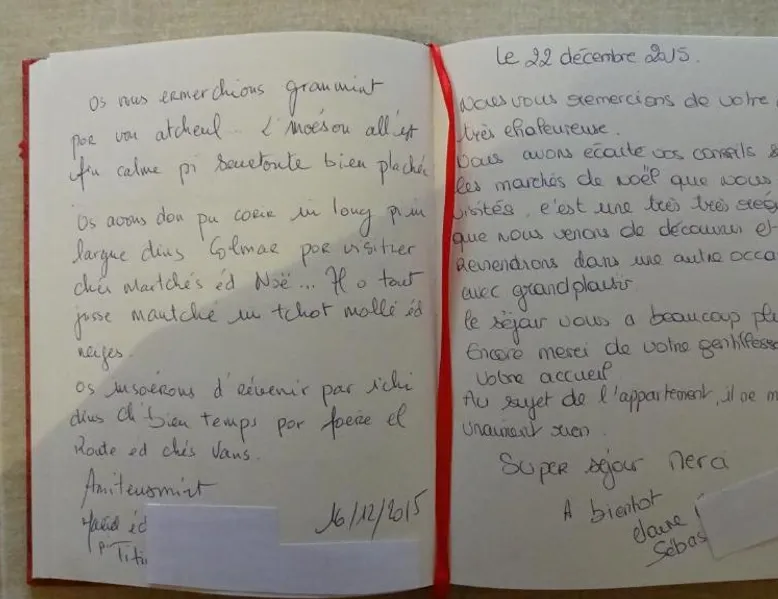 Os vous ermerchions granmint
por vou atcheul... L'moéson all'est
fin calme pi seuetoute bien plachée
Os avons don pu corir in long pi in
largue dins Colmar por visitier
chés martchés éd Noë... Il o tout
jusse mantché in tchot mollé éd
neiges.
Os inspérons d'érvenir par ichi
dins ch'bien temps por foere el
Route ed chés Vans.
Amiteusmint
éd
pi Titi
16/12/2015
Le 22 décembre 2015.
Nous vous remercions de votre
très chaleureuse.
Nous avons écouté vos conseils
les marchés de noël que nous
visités, c'est une très très
que nous venons de découvrir et
Reviendrons dans une autre occa
avec grand plaisir.
le séjour nous a beaucoup plu
Encore merci de votre gentillesse
votre accueil
Au sujet de l'appartement, il ne m
vraiment rien.
Super séjour Merci
A bientot
Claire
Sébas